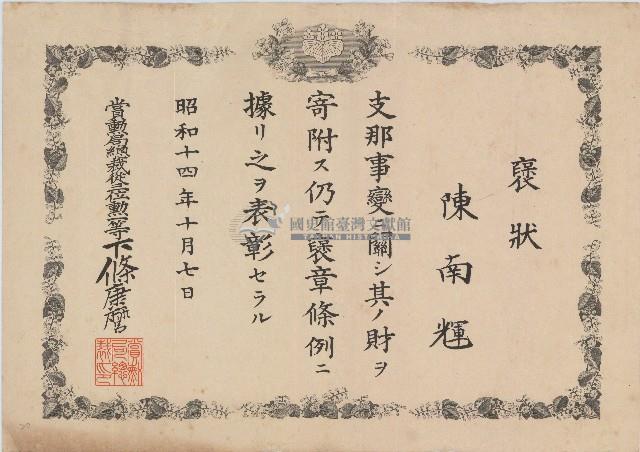 褒狀
陳南輝
支那事變ニ關シ其ノ財ヲ
寄附ス仍テ褒章條例ニ
據リ之ヲ表彰セラル
昭和十四年十月七日
賞勳局總裁從三位勳一等下條康麿
賞勳局總裁之印
國史館臺灣文獻館
TAIWAN HISTORICA